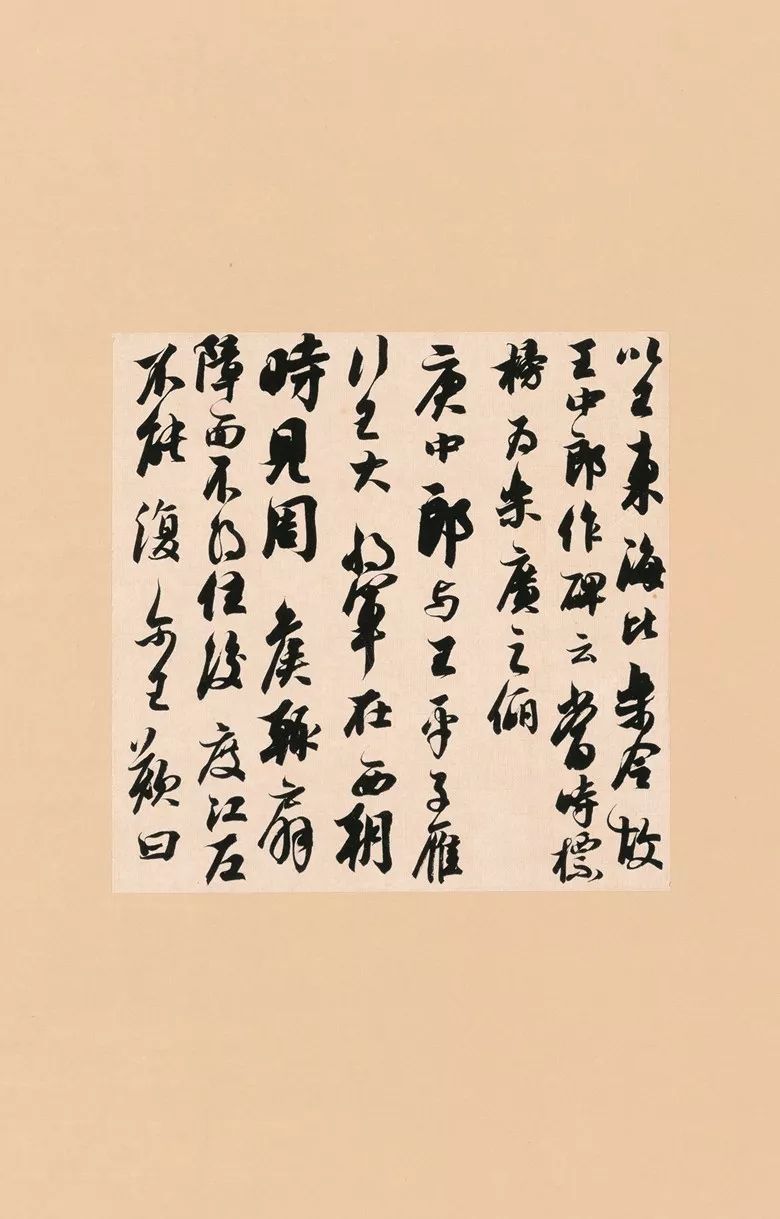 以王東海比樂令故
王中郎作碑云當時標
榜为樂廣之俪
庾中郎与王平子雁
行王大将軍在西朝
時見周侯輒扇
障面不得住後度江左
不能復尔王歎曰